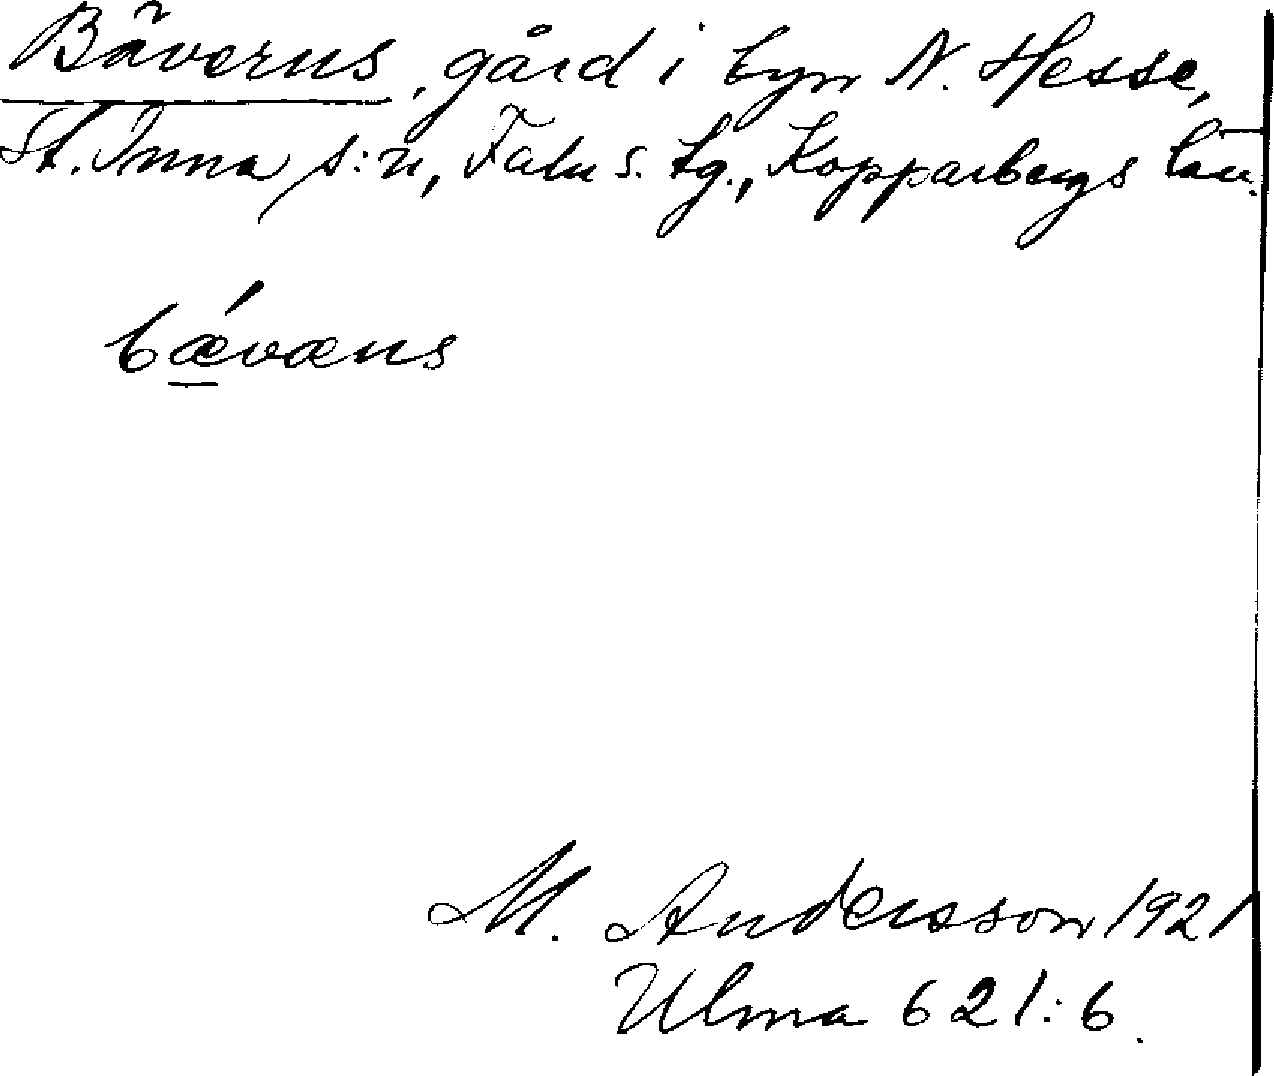 Bäverns, gård i byn N. Hesse,
St. Tuna s:n, Falu s. tg., Kopparbergs län.
bǽvæns
M. Andersson 1921
Ulma 621:6.